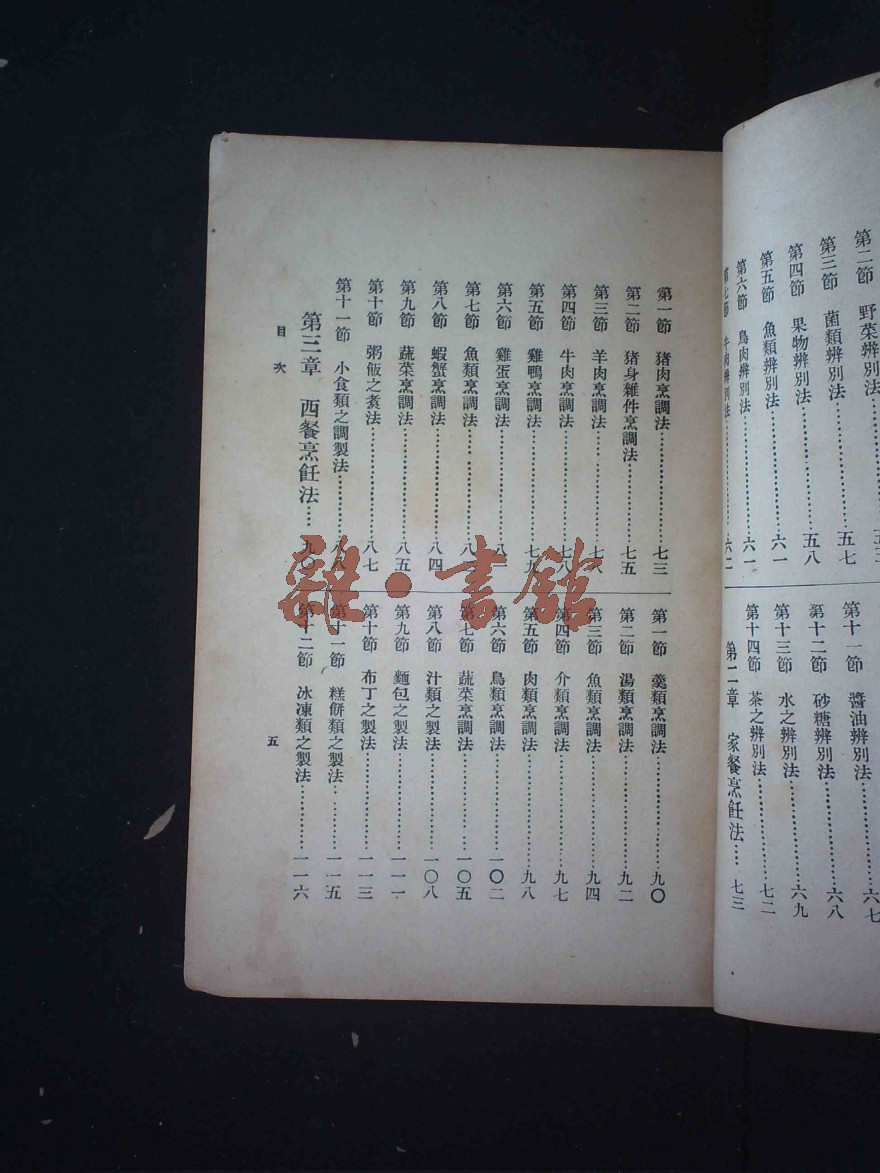 第二節　野菜辨別法
第三節　菌類辨別法…………五七
第四節　果物辨別法…………五八
第五節　魚類辨別法…………六一
第六節　鳥肉辨別法…………六一
第七節　牛肉辨別法…………六二
第十一節　醬油辨別法…………六七
第十二節　砂糖辨別法…………六八
第十三節　水之辨別法…………六九
第十四節　茶之辨別法…………七二
第二章　家餐烹飪法……七三
第一節　猪肉烹調法…………七三
第二節　猪身雜件烹調法…………七五
第三節　羊肉烹調法…………七八
第四節　牛肉烹調法…………七八
第五節　雞鴨烹調法…………七九
第六節　雞蛋烹調法…………八一
第七節　魚類烹調法…………八
第八節　蝦蟹烹調法…………八四
第九節　蔬菜烹調法…………八五
第十節　粥飯之煑法…………八七
第十一節　小食類之調製法…………八八
第三章　西餐烹飪法……九〇
第一節　羹類烹調法…………九〇
第二節　湯類烹調法…………九二
第三節　魚類烹調法…………九四
第四節　介類烹調法…………九七
第五節　肉類烹調法…………九八
第六節　鳥類烹調法…………一〇二
第七節　蔬菜烹調法…………一〇五
第八節　汁類之製法…………一〇八
第九節　麵包之製法…………一一一
第十節　布丁之製法…………一一三
第十一節　糕餅類之製法…………一一五
第十二節　冰凍類之製法…………一一六
目次
五
雜·書館